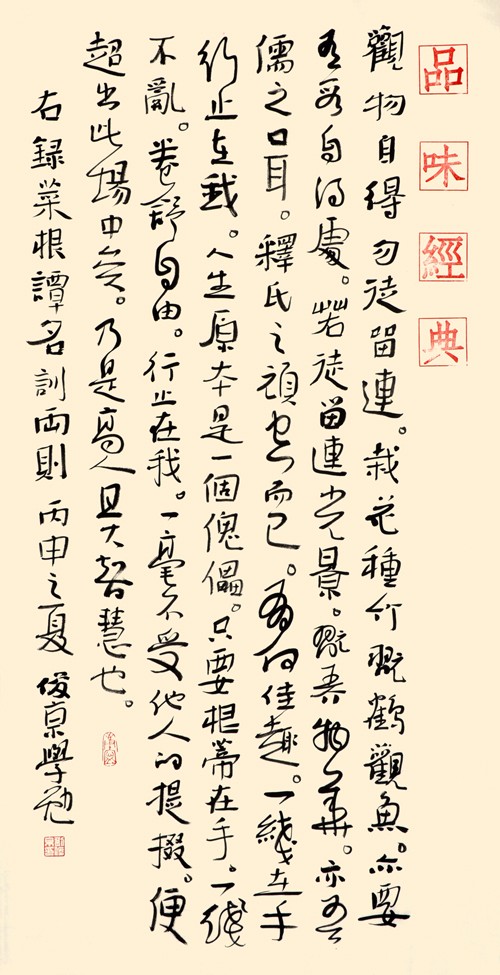 品味經典
觀物自得勿徒留連。栽花種竹翫鶴觀魚。亦要
有段自得處。若徒留連光景。翫弄物華。亦吾
儒之口耳。釋氏之頑空而已。有何佳趣。一線在手
行止在我。人生原本是一個傀儡。只要根蒂在手。一線
不亂。卷舒自由。行止在我。一毫不受他人的提掇。便
超出此場中矣。乃是高人且大智慧也。
右録菜根譚名訓兩則 丙申之夏 俊京學勉